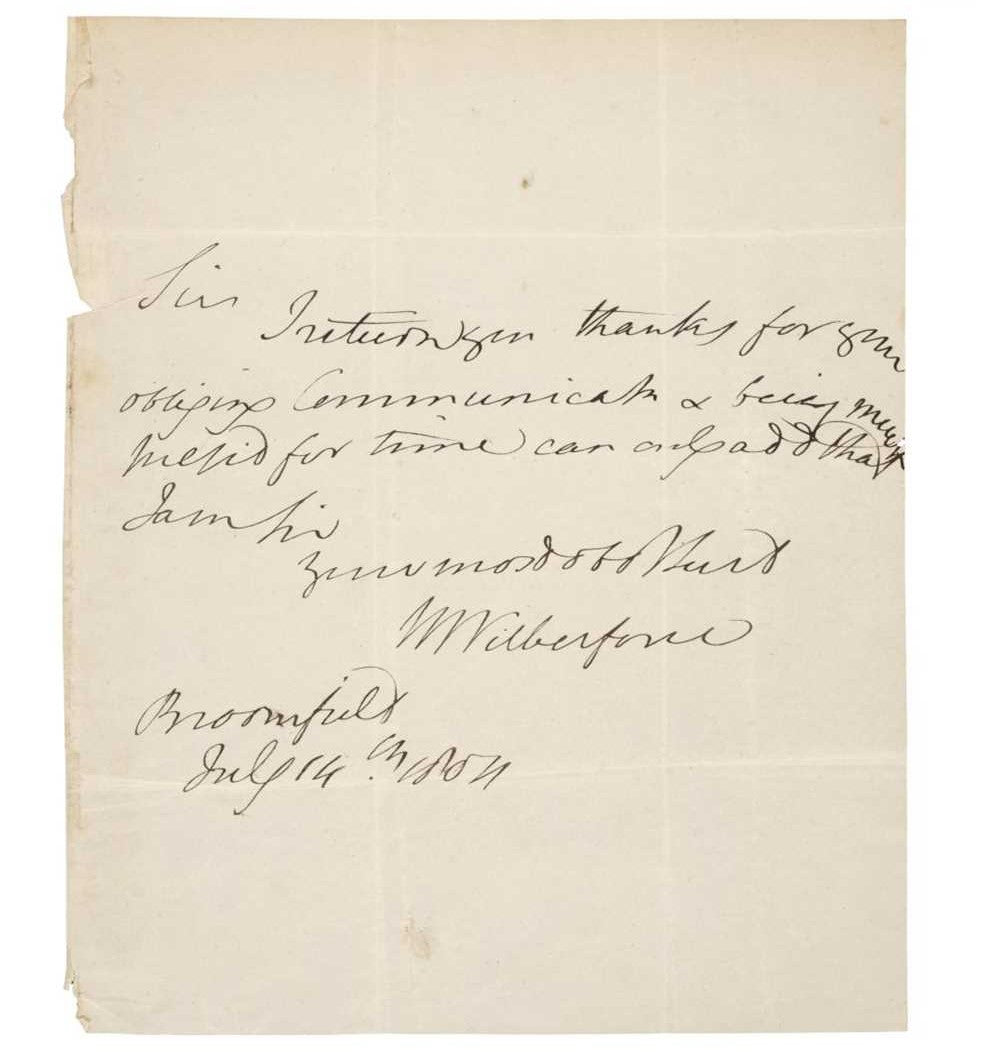 Sir
I return you thanks for your
obliging Communicatn & being much
press'd for time can only add that
I am Sir
your most obt Sert
W Wilberforce
Broomfield
July 14th. 1804